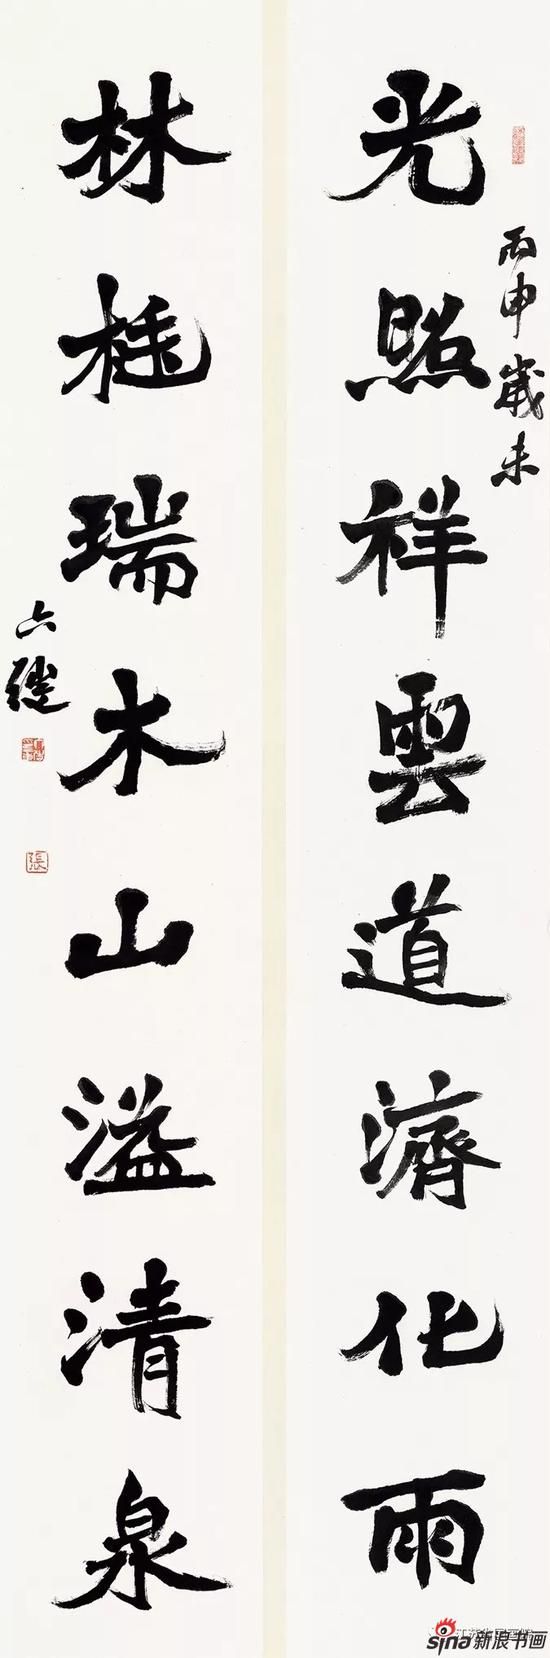 丙申歲末
光照祥雲道濟化雨
林挺瑞木山溢清泉
張
sina新浪书画